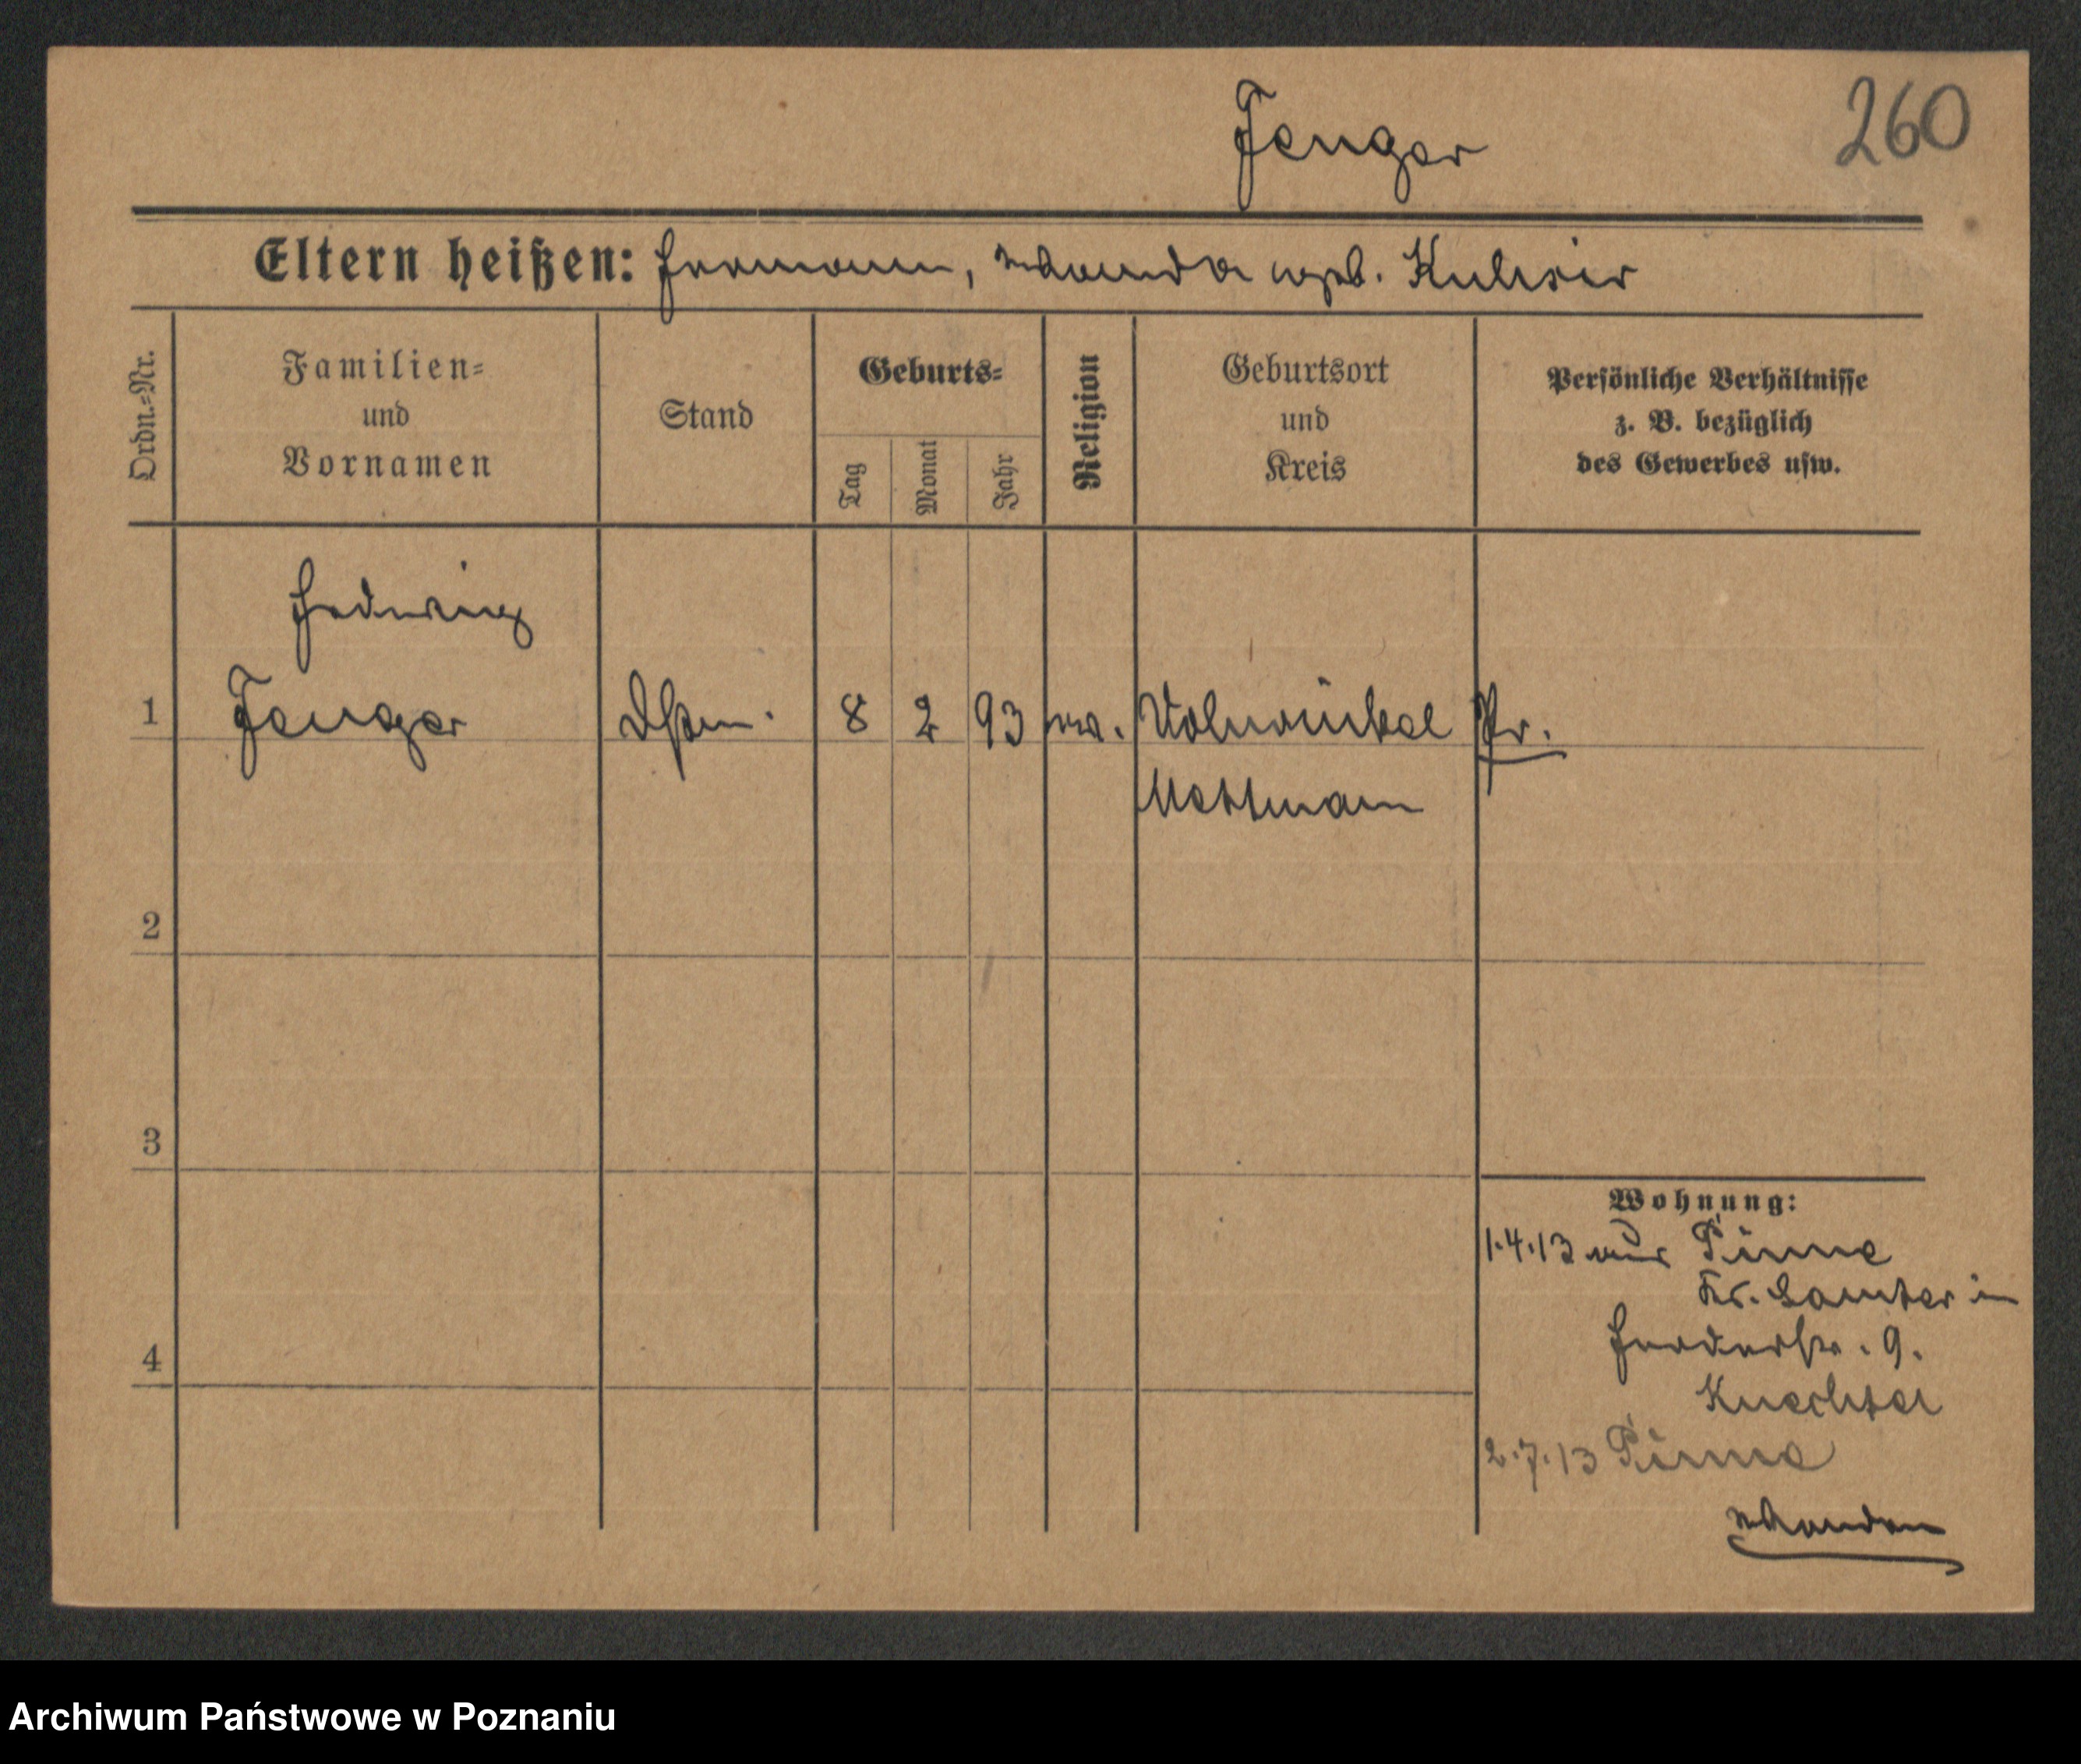 Fenger
260
Eltern heißen: Hermann, Wanda geb.
Ordn.=Nr.
Familien=
und
Vornamen
Stand
Geburts=
Tag
Monat
Jahr
Religion
Geburtsort
und
Kreis
Persönliche Verhältnisse
z. B. bezüglich
des Gewerbes usw.
Hedwig
1 Fenger 8 2 93 Vohwinkel Pr.
Mettmann
2
3
4
Wohnung:
1.4.13 aus Pinne
Kr. Samter in
Herderstr. 9.
Knechtel
2.7.13 Pinne
Archiwum Państwowe w Poznaniu